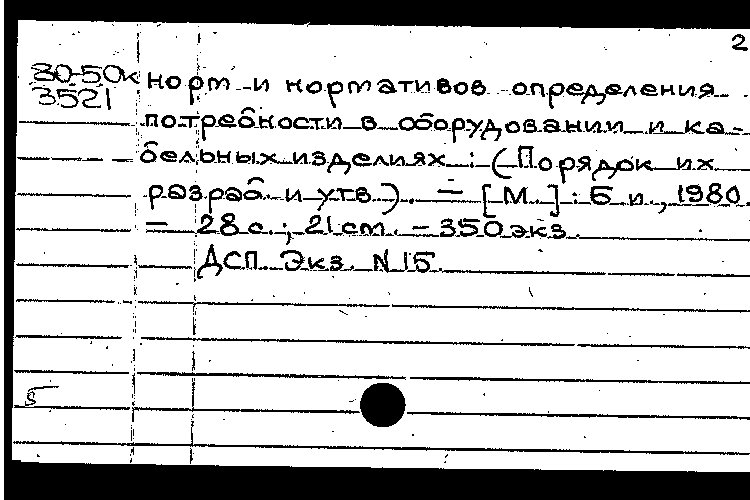 2
80-50к норм и нормативов определения
3521
потребности в оборудовании и ка-
бельных изделиях : (Порядок их
разраб. и утв.). — [М.] : Б и., 1980.
— 28 с. ; 21 cm. — 350 экз.
ДСП. Экз. N 15.
Б